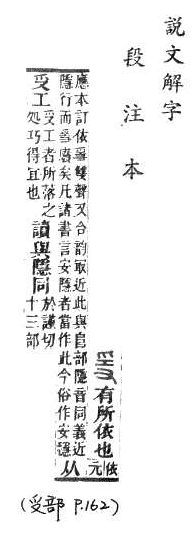 說文解字
段注本
𤔌有所依也依
元
應本訂依𤔌雙聲又合韵取近此與𨸏部隱音同義近
隱行而𤔌廢矣凡諸書言安隱者當作此今俗作安穩
从
𠬪工
𠬪工者所落之
処巧得宜也
讀與隱同
於謹切
十三部
(𠬪部 P.162)